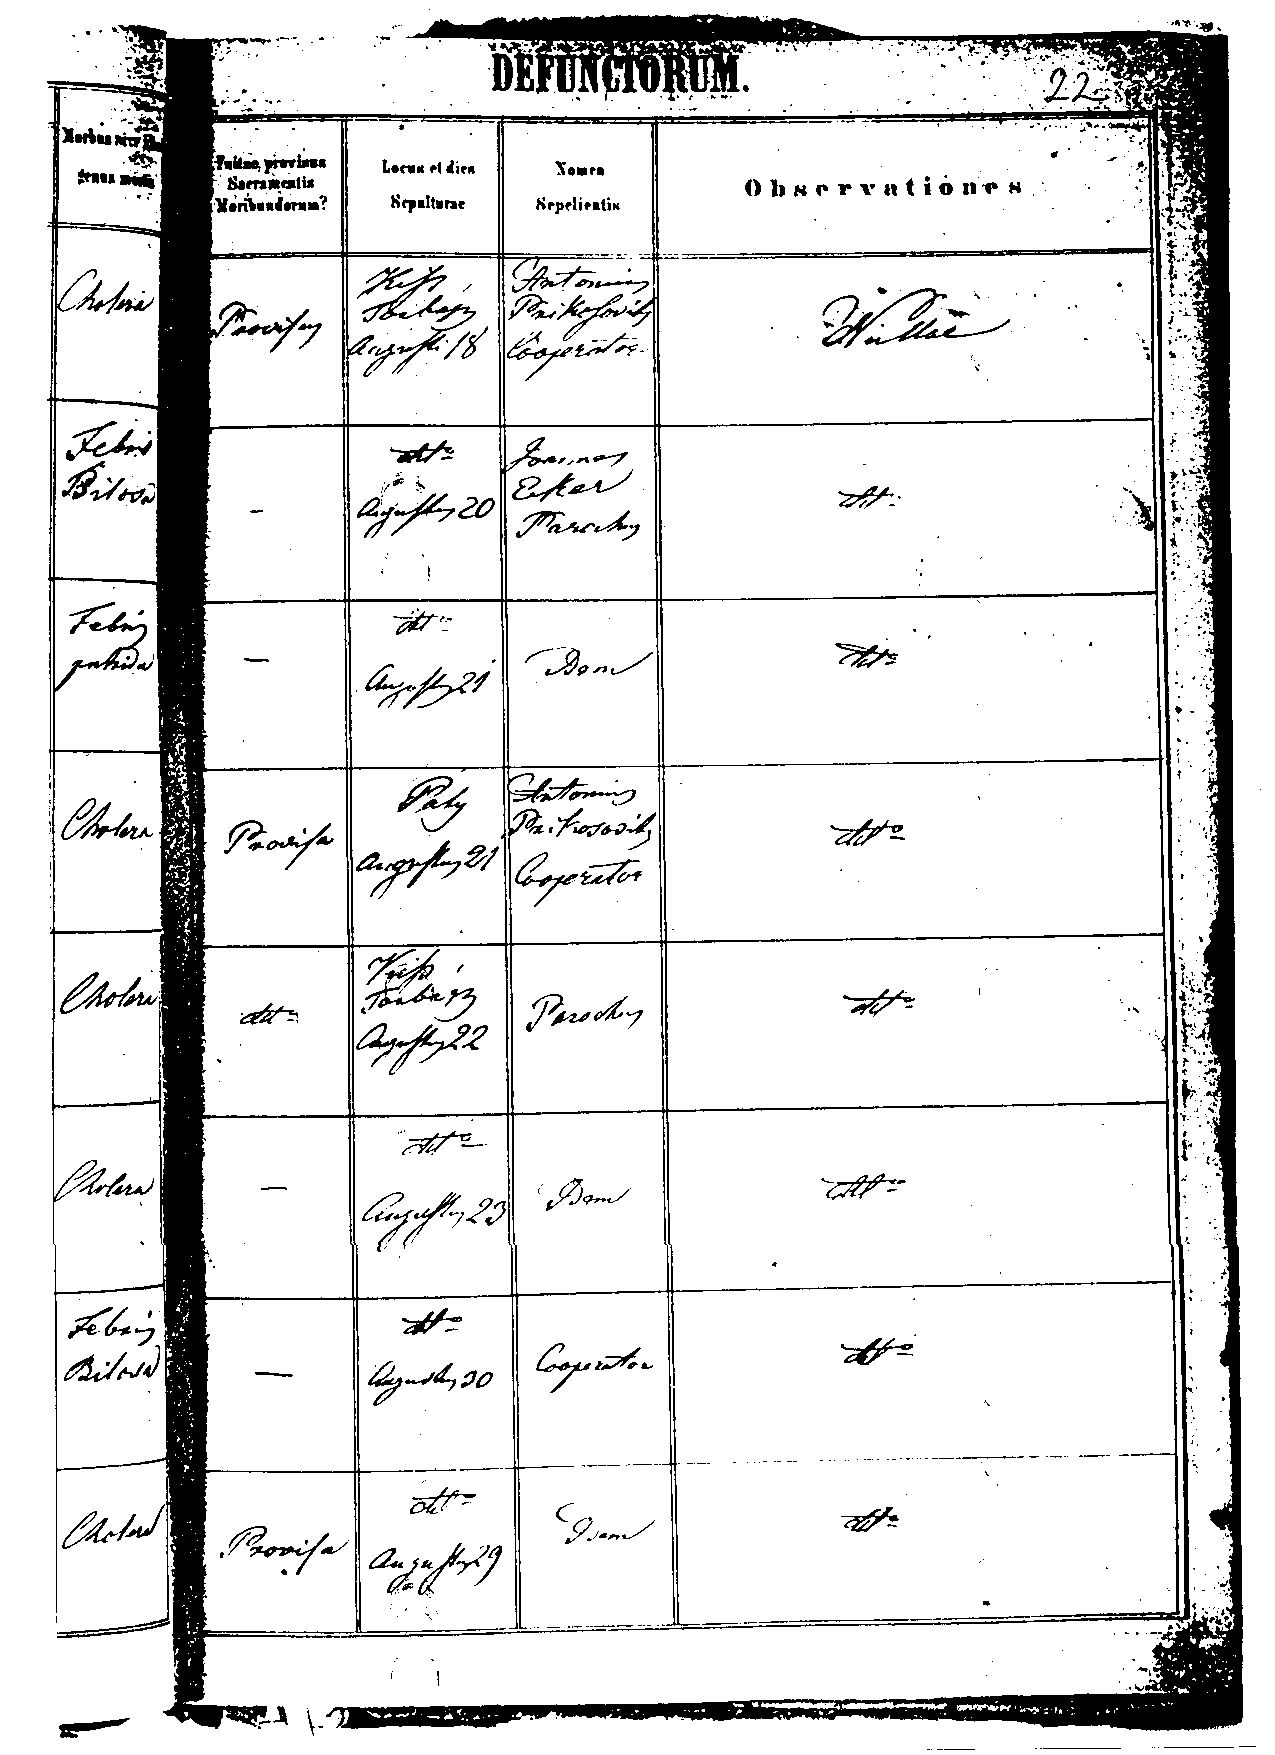 DEFUNCTORUM.
22
Morbus
genus mortis
Fuitne, provisus
Sacramentis
Moribundorum?
Locus et dies
Sepulturae
Nomen
Sepelientis
Observationes
Cholera
Provisus
Kiss
Augusti 18
Antonius
Prikosovits
Cooperator
Nullae
Febris
Bilosa
—
dtto
Augustus 20
Joannes
Eker
Parochus
dtto
Febris
putrida
—
dtto
Augustus 21
Idem
dtto
Cholera
Provisa
Paly
Augustus 21
Antonius
Prikosovits
Cooperator
dtto
Cholera
dtto
Kiss
Augustus 22
Parochus
dtto
Cholera
—
dtto
Augustus 23
Idem
dtto
Febris
Bilosa
—
dtto
Augustus 30
Cooperator
dtto
Cholera
Provisa
dtto
Augustus 29
Idem
dtto